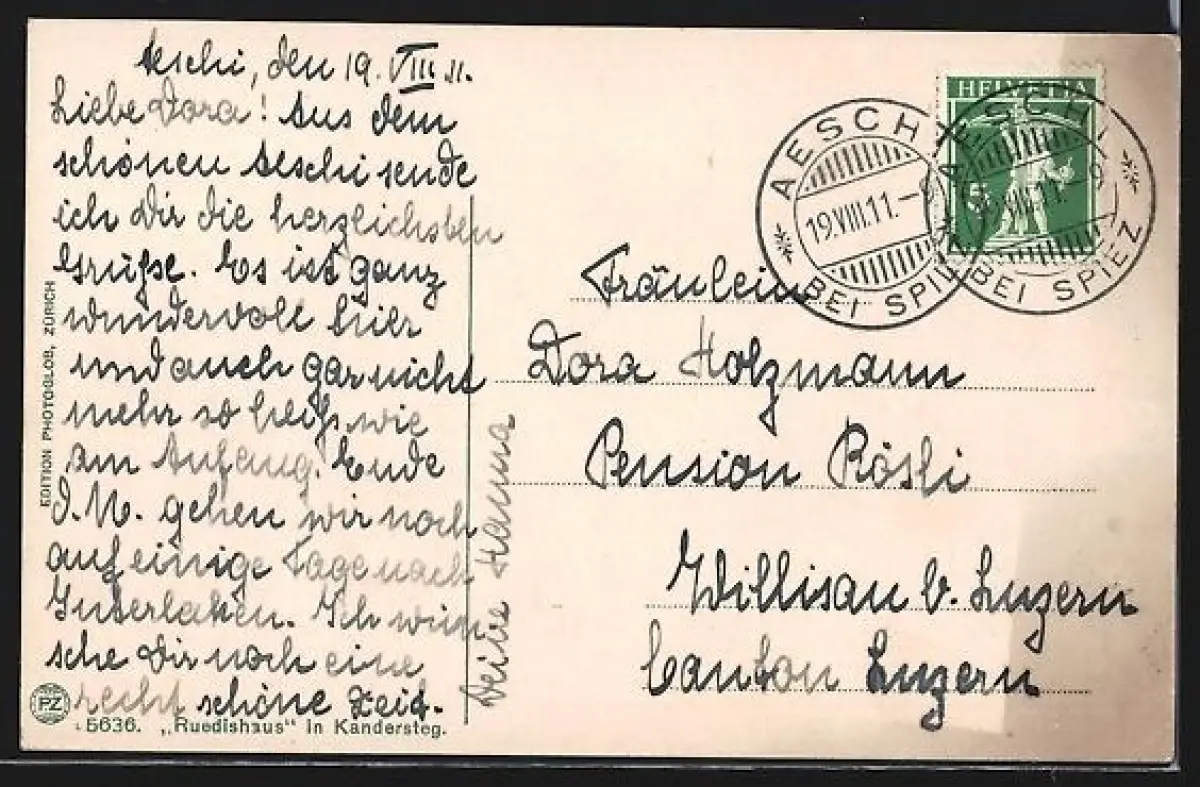 Aeschi, den 19. VIII 11.
Liebe Dora! Aus dem
schönen Aeschi sende
ich Dir die herzlichsten
Grüße. Es ist ganz
wundervoll hier
und auch gar nicht
mehr so heiß, wie
am Anfang. Ende
d. M. gehen wir noch
auf einige Tage nach
Interlaken. Ich wün
sche Dir noch eine
recht schöne Zeit.
Deine Hanna
EDITION PHOTOGLOB, ZÜRICH
PZ
5636. „Ruedishaus" in Kandersteg.
HELVETIA
5
AESCHI
19.VIII.11.-9
BEI SPIEZ
AESCHI
19.VIII.11.-9
BEI SPIEZ
Fräulein
Dora Holzmann
Pension Rösli
Willisau b. Luzern
Canton Luzern